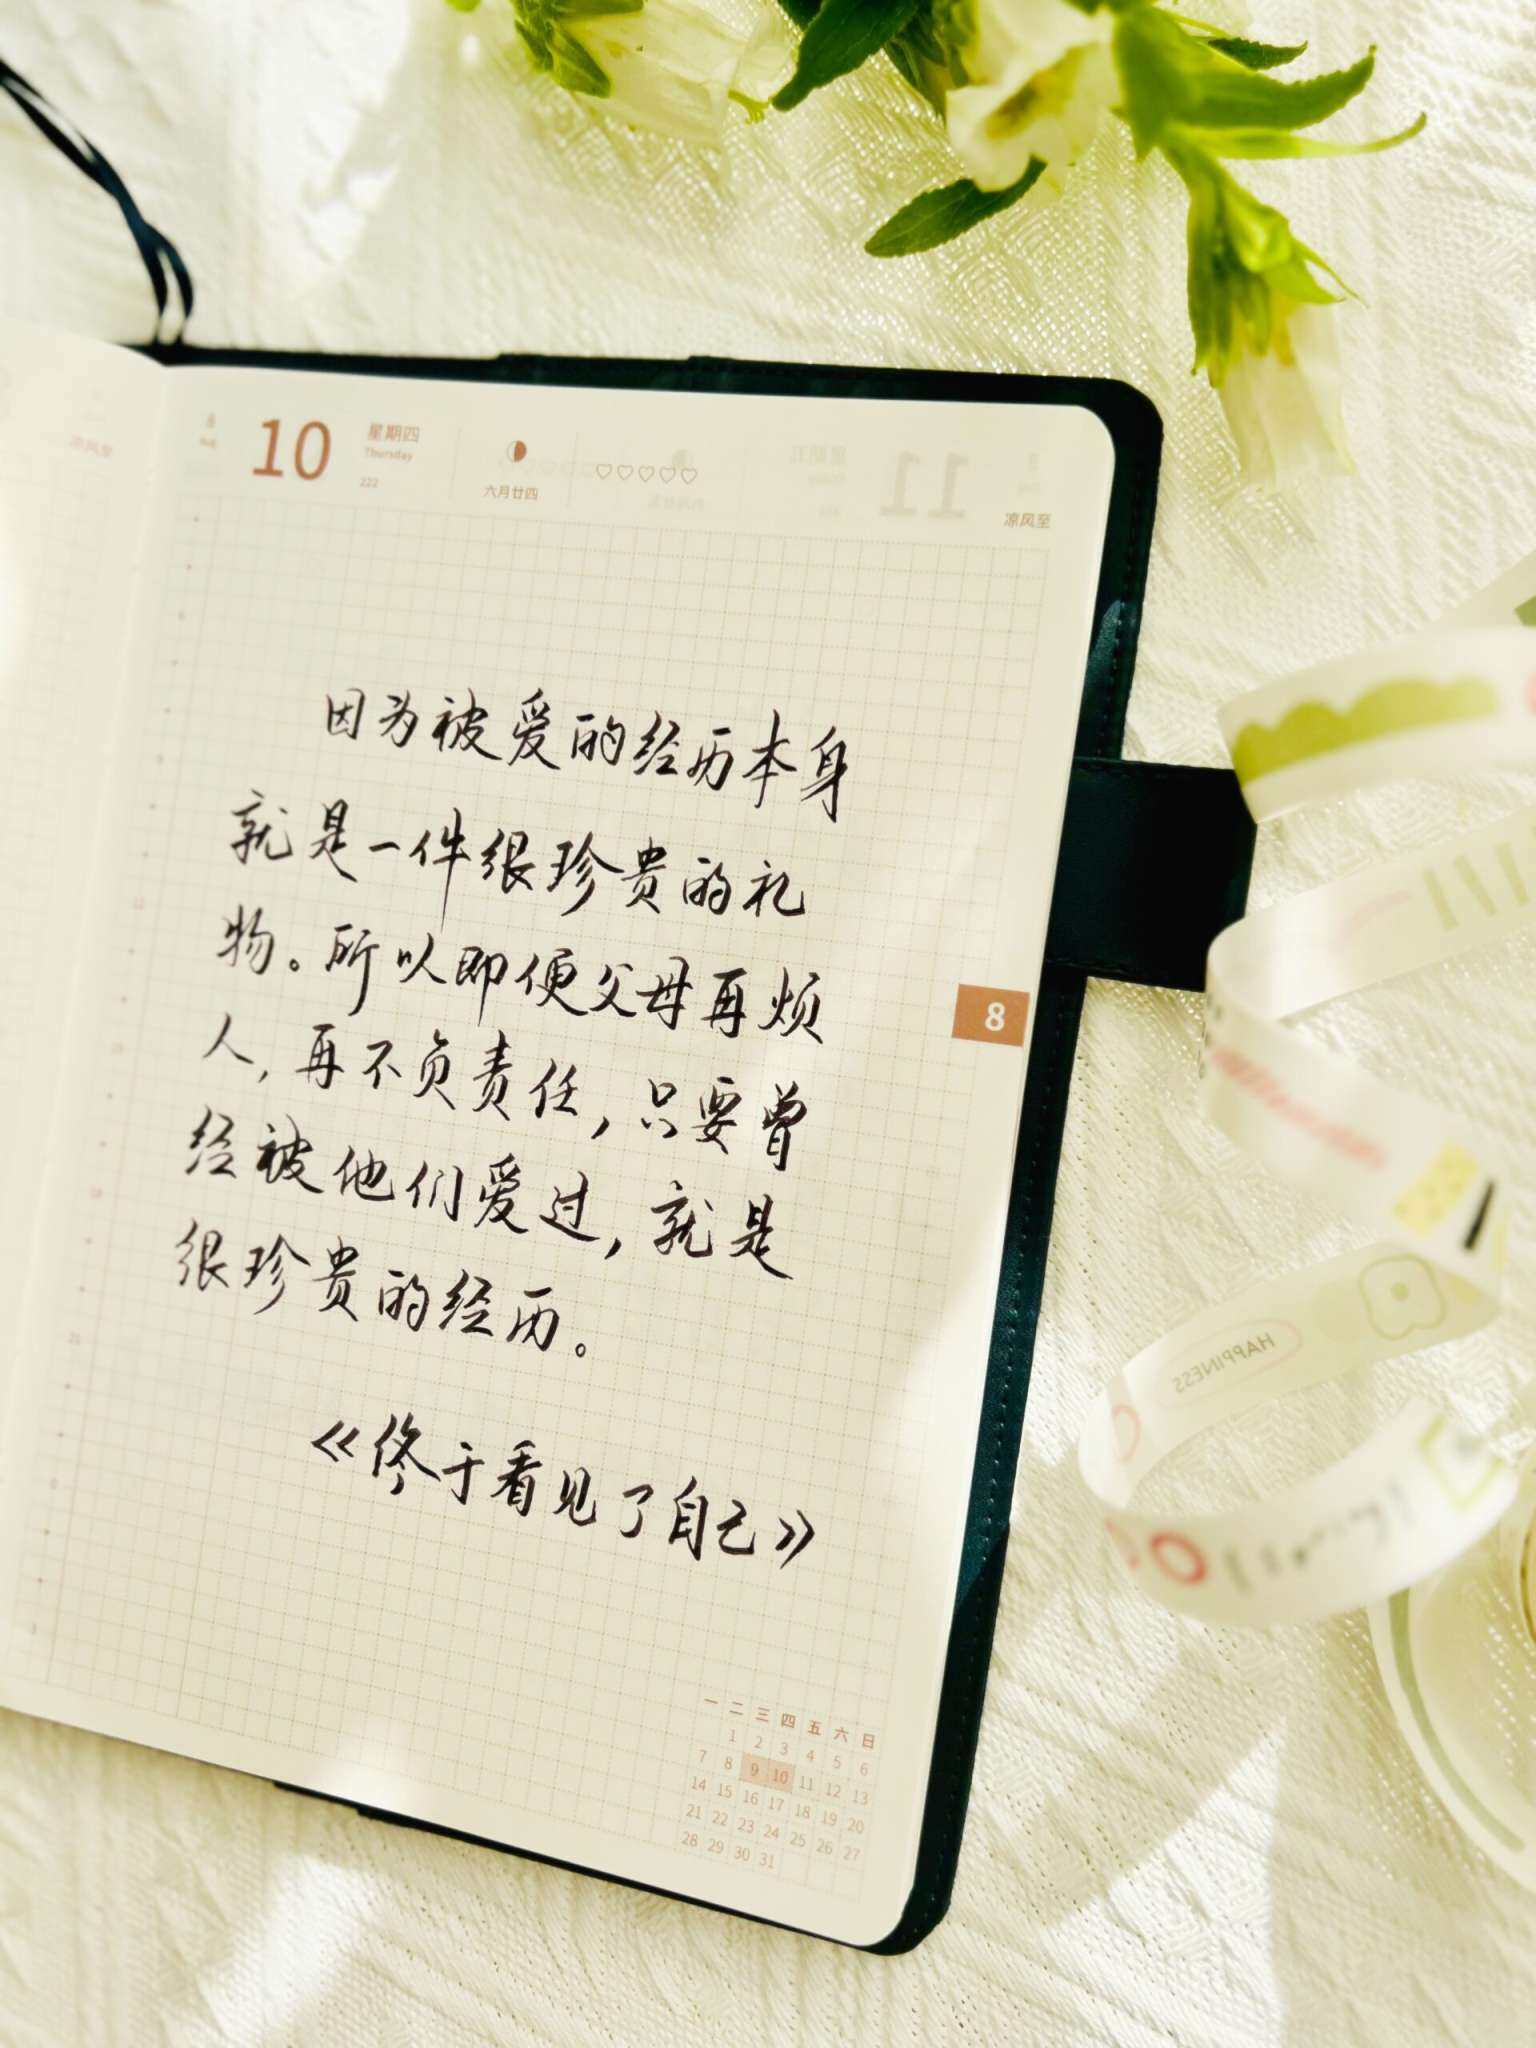 8
10
星期四
Thursday
222
六月廿四
凉风至
因为被爱的经历本身
就是一件很珍贵的礼
物。所以即便父母再烦
人,再不负责任,只要曾
经被他们爱过,就是
很珍贵的经历。
《终于看见了自己》
8
一 二 三 四 五 六 日
1 2 3 4 5 6
7 8 9 10 11 12 13
14 15 16 17 18 19 20
21 22 23 24 25 26 27
28 29 30 31
凉风至
HAPPINESS